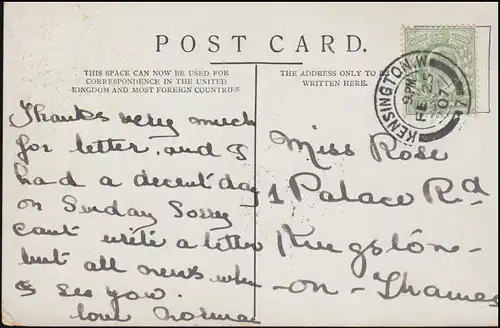 POST CARD.
THIS SPACE CAN NOW BE USED FOR
CORRESPONDENCE IN THE UNITED
KINGDOM AND MOST FOREIGN COUNTRIES
THE ADDRESS ONLY TO BE
WRITTEN HERE.
KENSINGTON.W
9.PM
FE 25
07
Thanks very much
for letter, and I
had a decent day
on Sunday Sorry
cant write a letter
but all news when
I see you.
love Norma
Miss Rose
1 Palace Rd
Kingston-
-on-Thames